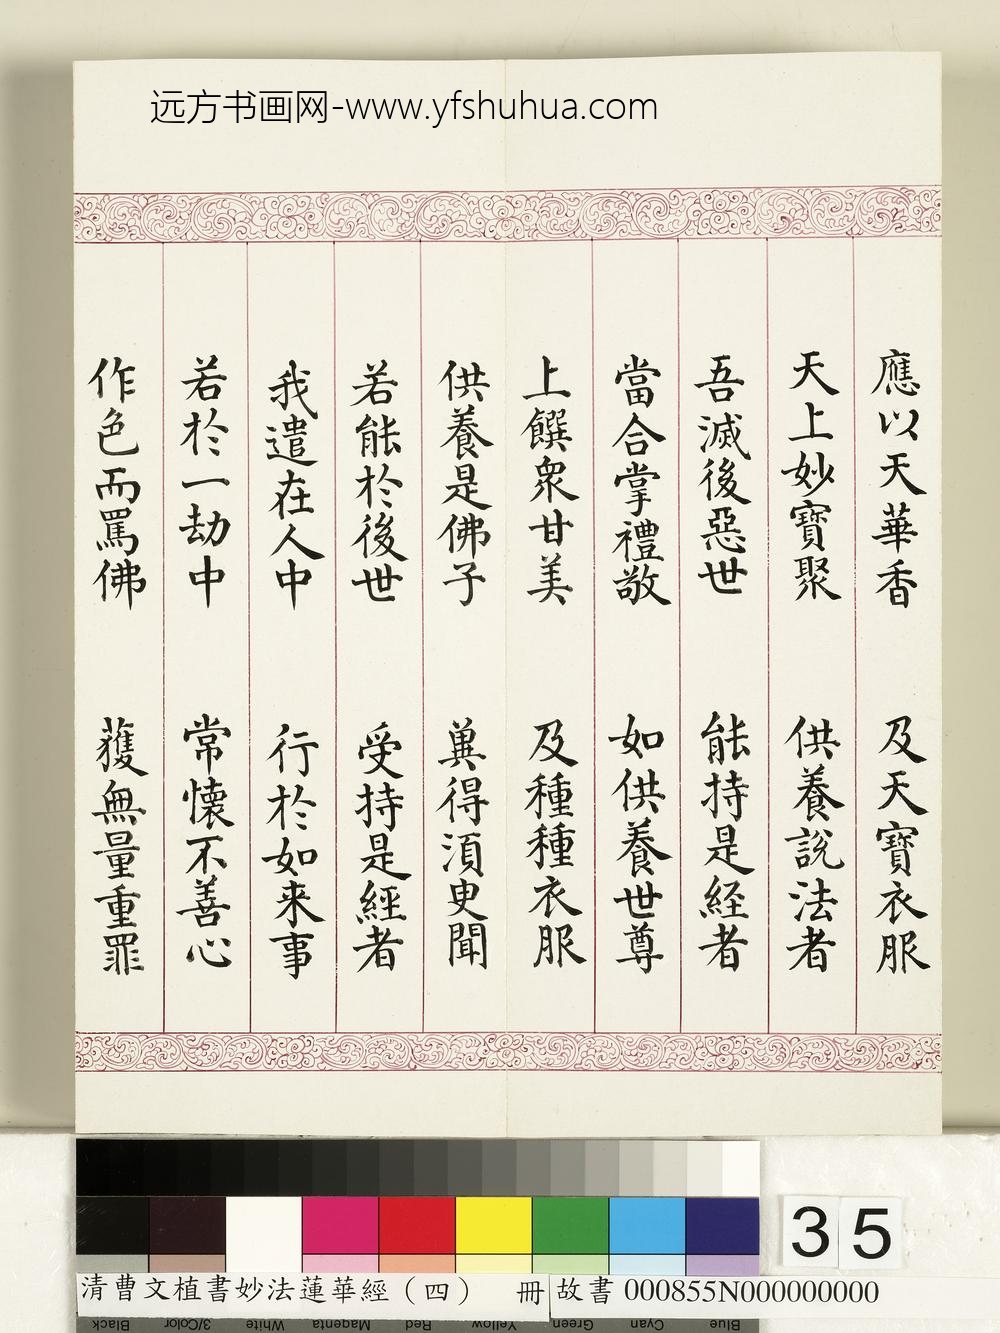 远方书画网-www.yfshuhua.com
應以天華香 及天寶衣服
天上妙寶聚 供養說法者
吾滅後惡世 能持是経者
當合掌禮敬 如供養世尊
上饌衆甘美 及種種衣服
供養是佛子 冀得須臾聞
若能於後世 受持是經者
我遣在人中 行於如来事
若於一劫中 常懷不善心
作色而罵佛 獲無量重罪
35
清曹文植書妙法蓮華經（四） 冊 故書 000855N000000000
Black 3/Color White Magenta Red Yellow Green Cyan Blue